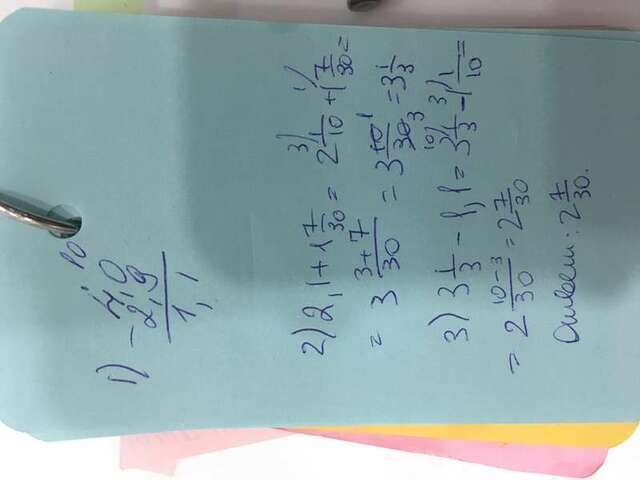 10
1) 4,0
- 2,9
1,1
2) 2,1 + 1 7/30 = 2 1/10 + 1 7/30 =
= 3 3+7/30 = 3 10/30 = 3 1/3
3) 3 1/3 - 1,1 = 3 1/3 - 1 1/10 =
= 2 10-3/30 = 2 7/30
Ответ: 2 7/30.